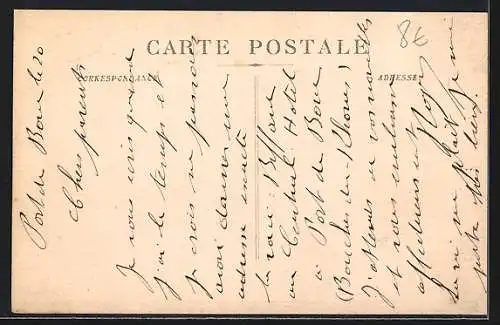 8€
CARTE POSTALE
CORRESPONDANCE
ADRESSE
Port de Bouc le 20
Chers parents
Je vous écris quand
j'ai le temps et
je crois ne pas vous
avoir donner mon
adresse exacte
la voici :
au Central Hotel
à Port de Bouc
(Bouches du Rhone)
J'attends de vos nouvelles
et vous embrasse
affectueusement